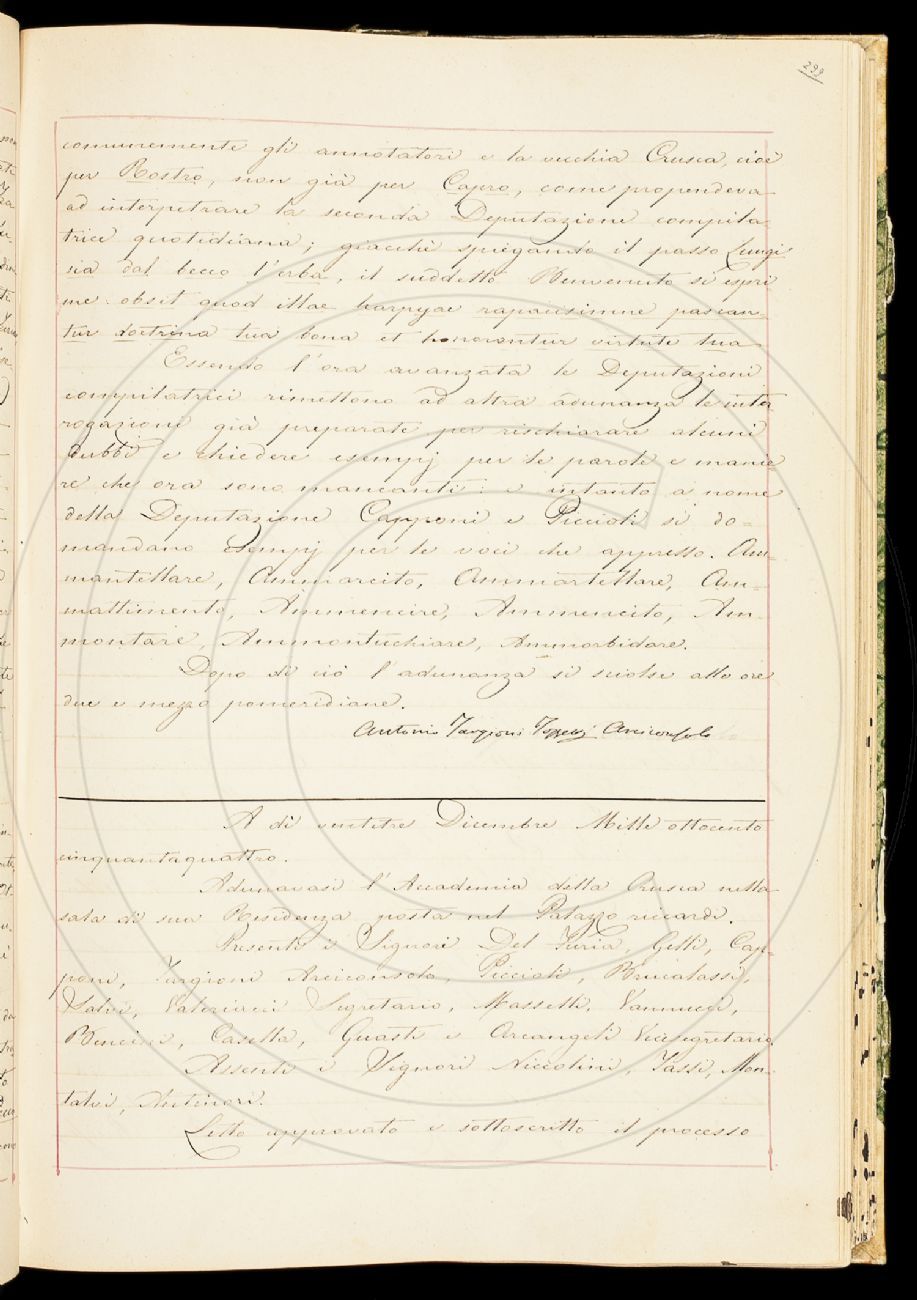 299
comunemente gli annotatori e la vecchia Crusca, cioè
per Rostro, non già per Capro, come propendeva
ad interpetrare la seconda Deputazione compila-
trice quotidiana; giacchè spiegando il passo Lungi
sia dal becco l'erba, il suddetto Benvenuto si espri
me: absit quod illae harpyae rapacissime pascan-
tur doctrina tua bona et honorentur virtute tua
Essendo l'ora avanzata le Deputazioni
compilatrici rimettono ad altra adunanza le inter
rogazioni già preparate per rischiarare alcuni
dubbi e chiedere esempj per le parole e manie
re che ora sono mancanti: e intanto a nome
della Deputazione Capponi e Piccioli si do=
mandano esempj per le voci che appresso. Am=
mantellare, Ammarcito, Ammartellare, Am=
mattimento, Ammencire, Ammencito, Am
montare, Ammonticchiare, Ammorbidare.
Dopo di ciò l'adunanza si sciolse alle ore
due e mezzo pomeridiane.
Antonio Targioni Tozzetti Arciconsolo
A dì ventitre Dicembre Mille ottocento
cinquantaquattro.
Adunavasi l'Accademia della Crusca nella
sala di sua Residenza posta nel Palazzo riccardi.
Presenti i Signori Del Furia, Gelli, Cap=
poni, Targioni Arciconsolo, Piccioli, Brucalassi,
Salvi, Valeriani Segretario, Masselli, Vannucci,
Bencini, Casella, Guasti e Arcangeli Vicesegretario
Assenti i Signori Niccolini, Tassi, Mon
talvi, Antinori.
Letto approvato e sottoscritto il processo